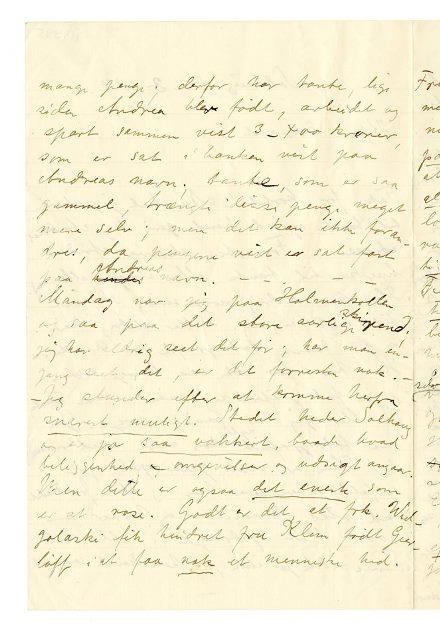 mange penge; derfor har tante, lige
siden Andrea blev født, arbeidet og
spart sammen vist 3-400 kroner,
som er sat i banken vist paa
Andreas navn. Tante, som er saa
gammel, trængte disse penge meget
mere selv; men det kan ikke foran-
dres, da pengene vist er sat fast
paa Andreas navn.
Mandag var jeg paa Holmenkollen
og saa paa det store aarlige skirend;
jeg har aldrig seet det før; har man en-
gang seet det, er det forresten nok. -
- Jeg stunder efter at komme herfra
snarest muligt. Stedet heder Solhaug
og er jo saa vakkert, baade hvad
beliggenhed - omgivelser og udsigt angaar.
Men dette er ogsaa det eneste som
er at rose. Godt er det at frk.
fik hindret fru Klem født
i at faa nok et menneske hid.